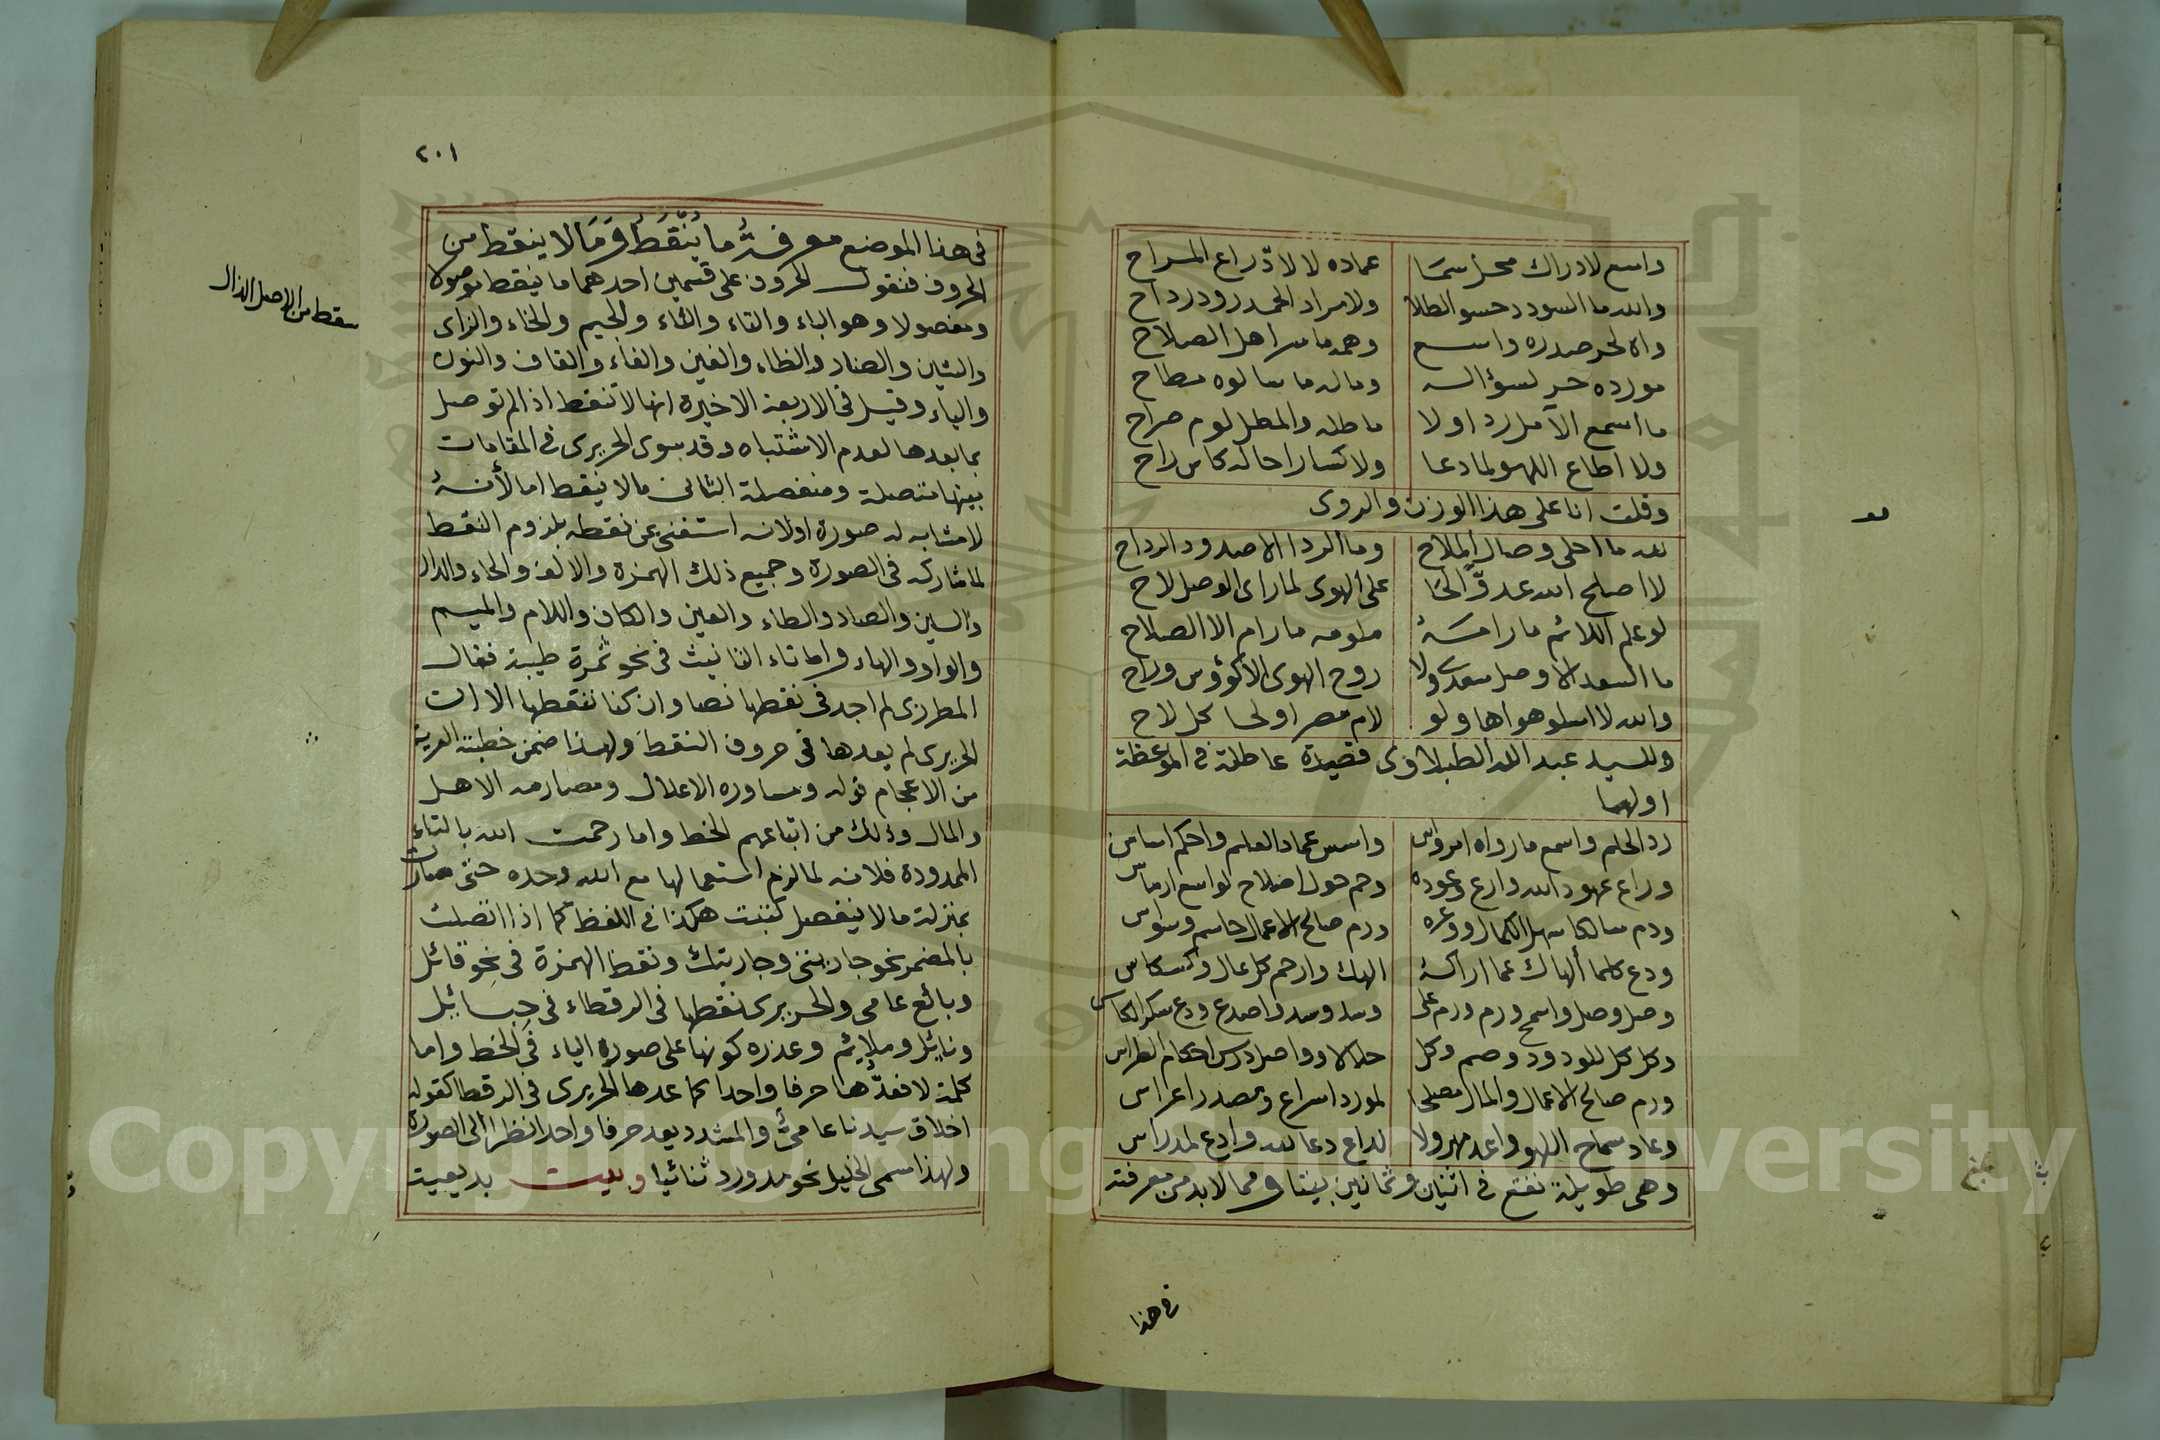 واسع لادراك محل سما عماده لا لا ذراع المراح
والله ما السودد حسو الطلا ولا مراد الحمد رود رداح
واها لحر صدره واسع وهمه ما سر اهل الصلاح
مورده حر لسؤاله وماله ما سالوه مطاح
ما اسمع الآمل رد اولا ماطله والمطل لوم صراح
ولا اطاع اللهو لما دعا ولا كسا راحا له كاس راح
وقلت انا على هذا الوزن والروى
لله ما احلى وصال الملاح وما الردا الا صدود الرداح
لا اصلح الله عد على الهوى لما راى الوصل لاح
لو علم اللائم ما رامه ملومه ما رام الا الصلاح
ما السعد الا وصل سعدى ولا روح الهوى الا كؤوس وراح
والله لا اسلو هواها ولو لام مصر اولحا كل لاح
وللسيد عبد الله الطبلاوى قصيدة عاطلة فى الموعظة
اولها
رد الحلم واسمع ما رواه امرواس واسس عماد العلم واحكم اساس
وراع عهود الله وارع وعوده وحم حول اصلاح لواسع ارماس
ودم سالكا سهل الكمال ووعره ورم صالح الاعمال حاسم وسواس
ودع كلما ألهاك عما اراكه الهك وارحم كل عال وكسكاس
وصل وصل واسمح ورم ورم على وسد وسد واصدع ودع سكر الكاس
وكل كل للودود وصم وكل حلالا وواصل درس احكام
ورم صالح الاعمال والمال مصلحا لمورد اسراع ومصدر اعراس
وعاد سماح اللهو واعد مهرولا لداع دعا لله وادع لمدراس
وهى طويلة نقع فى اثنين وثمانين بيتا ومما لابد من معرفته
فى هذا
٢٠١
فى هذا الموضع معرفة ما ينقط وما لا ينقط من
الحروف فنقول الحروف على قسمين احدهما ما ينقط موصولا
ومفصولا وهو الباء والتاء والثاء والجيم والخاء والزاى
والشين والضاد والظاء والغين والفاء والقاف والنون
والياء وقيل فى الاربعة الاخيرة انها لا تنقط اذا لم توصل
بما بعدها لعدم الاشتباه وقد سوى الحريرى فى المقامات
بينها متصلة ومنفصلة الثانى ما لا ينقط اما لأنه
لا مشابه له صورة او لانه استغنى عن نقطه بلزوم النقط
لما شاركه فى الصورة وجميع ذلك الهمزة والالف والحاء والدال
والسين والصاد والطاء والعين والكاف واللام والميم
والواو والهاء واما تاء التانيث فى نحو ثمرة طيبة فقال
المطرزى لم اجد فى نقطها نصا وان كنا ننقطها الا ان
الحريرى لم يعدها فى حروف النقط ولهذا ضمن خطبته العرية
من الاعجام قوله ومساوره الاعلال ومصارمه الاهل
والمال وذلك من اتباعهم الخط واما رحمت الله بالتاء
الممدودة فلانه لما لزم استعمالها مع الله وحده حتى صارت
بمنزلة ما لا ينفصل كتبت هكذا فى اللفظ كما اذا اتصلت
بالمضمر نحو جاريتى وجاريتك ونقط الهمزة فى نحو قائل
وبائع عامى والحريرى نقطها فى الرقطاء فى حبائل
ونائل وملائم وعذره كونها على صورة الياء فى الخط واما
كلمة لا فعدها حرفا واحدا كما عدها الحريرى فى الرقطا كقوله
اخلاق سيدنا عامى والمشدد يعد حرفا واحدا نظرا الى الصورة
ولهذا سمى الخليل نحو مد ورد ثنائيا وبيت بديعيت
سقط من الاصل الذال
Copyright © King Saud University